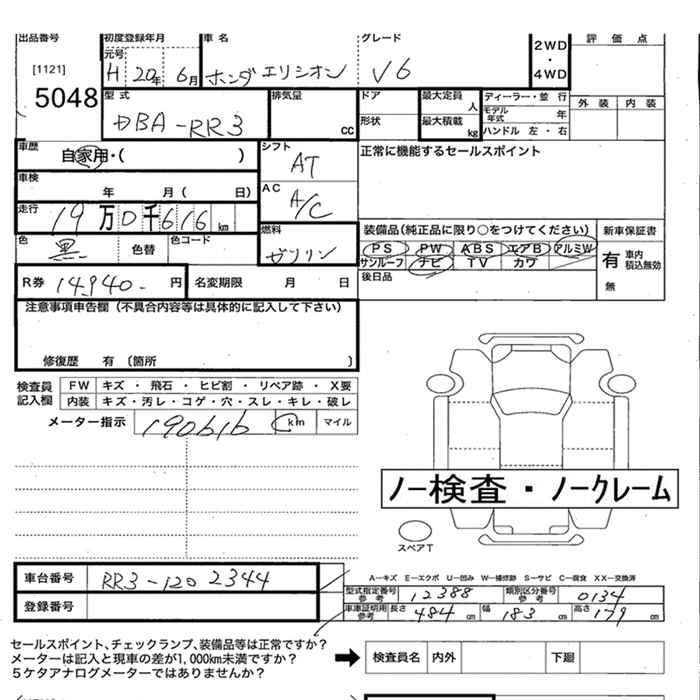 出品番号 初度登録年月 車名 グレード 評価点
元号
[1121] H 20年 6月 ホンダ エリシオン V6 2WD・4WD
5048
型式 排気量 ドア 最大定員 ディーラー・並行 外装 内装
人 モデル年式 年
DBA-RR3 cc 形状 最大積載 kg ハンドル 左・右
車歴 自家用・( ) シフト AT 正常に機能するセールスポイント
車検 年 月( 日) AC A/C
走行 19万0千616km 燃料 ガソリン 装備品(純正品に限り○をつけてください) 新車保証書
色 黒 色替 色コード PS PW ABS エアB アルミW 有 車内積込無効
サンルーフ ナビ TV カワ
R券 14,940- 円 名変期限 月 日 後日品 無
注意事項申告欄(不具合内容等は具体的に記入して下さい)
修復歴 有(箇所 )
検査員記入欄 FW キズ・飛石・ヒビ割・リペア跡・X要
内装 キズ・汚レ・コゲ・穴・スレ・キレ・破レ
メーター指示 190616 km マイル
ノー検査・ノークレーム
スペアT
車台番号 RR3-1202344 A-キズ E-エクボ U-凹み W-補修跡 S-サビ C-腐食 XX-交換済
型式指定番号 参考 12388 類別区分番号 参考 0134
登録番号 車庫証明用 参考 長さ 484cm 幅 183cm 高さ 179cm
セールスポイント、チェックランプ、装備品等は正常ですか?
メーターは記入と現車の差が1,000km未満ですか? 検査員名 内外 下廻
5ケタアナログメーターではありませんか?